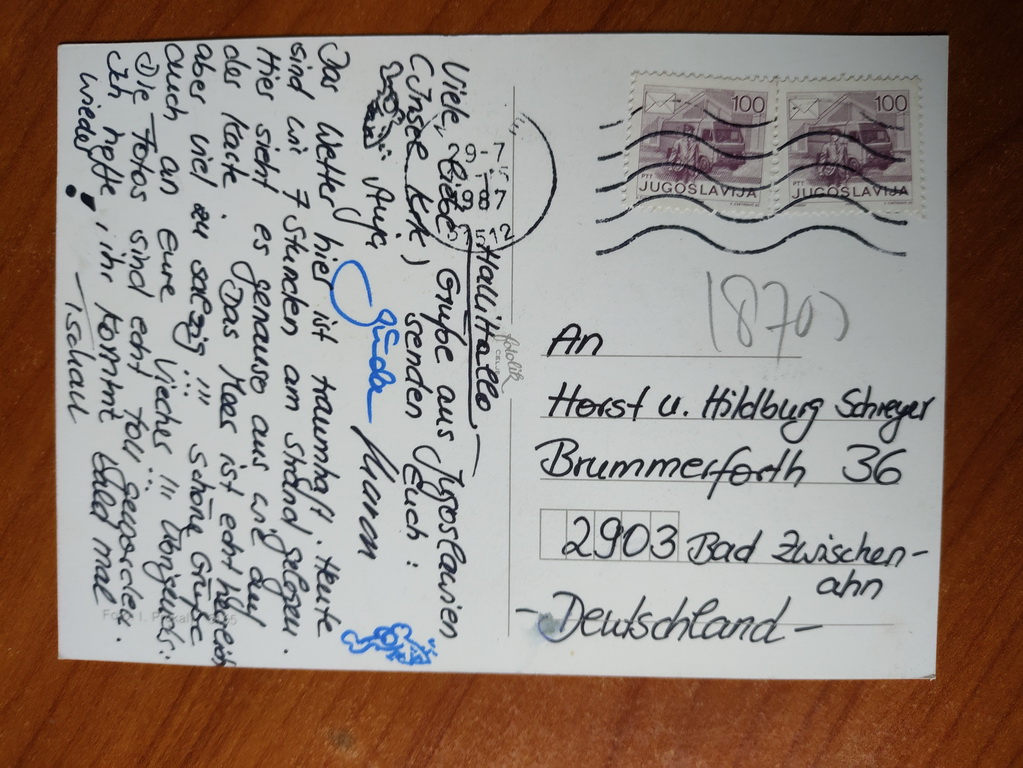 Hallihallo
Viele, liebe Grüße aus Jugoslawien
(Insel Krk) senden Euch:
Anja, Maren
Das Wetter hier ist traumhaft. Heute
sind wir 7 Stunden am Strand gelegen.
Hier sieht es genauso aus wie auf
der Karte. Das Meer ist echt herrlich
aber viel zu salzig!!! Schöne Grüße
auch an eure Viecher!! Übrigens:
Die Fotos sind echt toll geworden.
Ich hoffe, ihr kommt bald mal
wieder!
Tschau
29-7
1987
51512
fotolik
CELJE
100
100
PTT
JUGOSLAVIJA
PTT
JUGOSLAVIJA
An
Horst u. Hildburg Schreyer
Brummerforth 36
2903 Bad Zwischen-
ahn
- Deutschland -